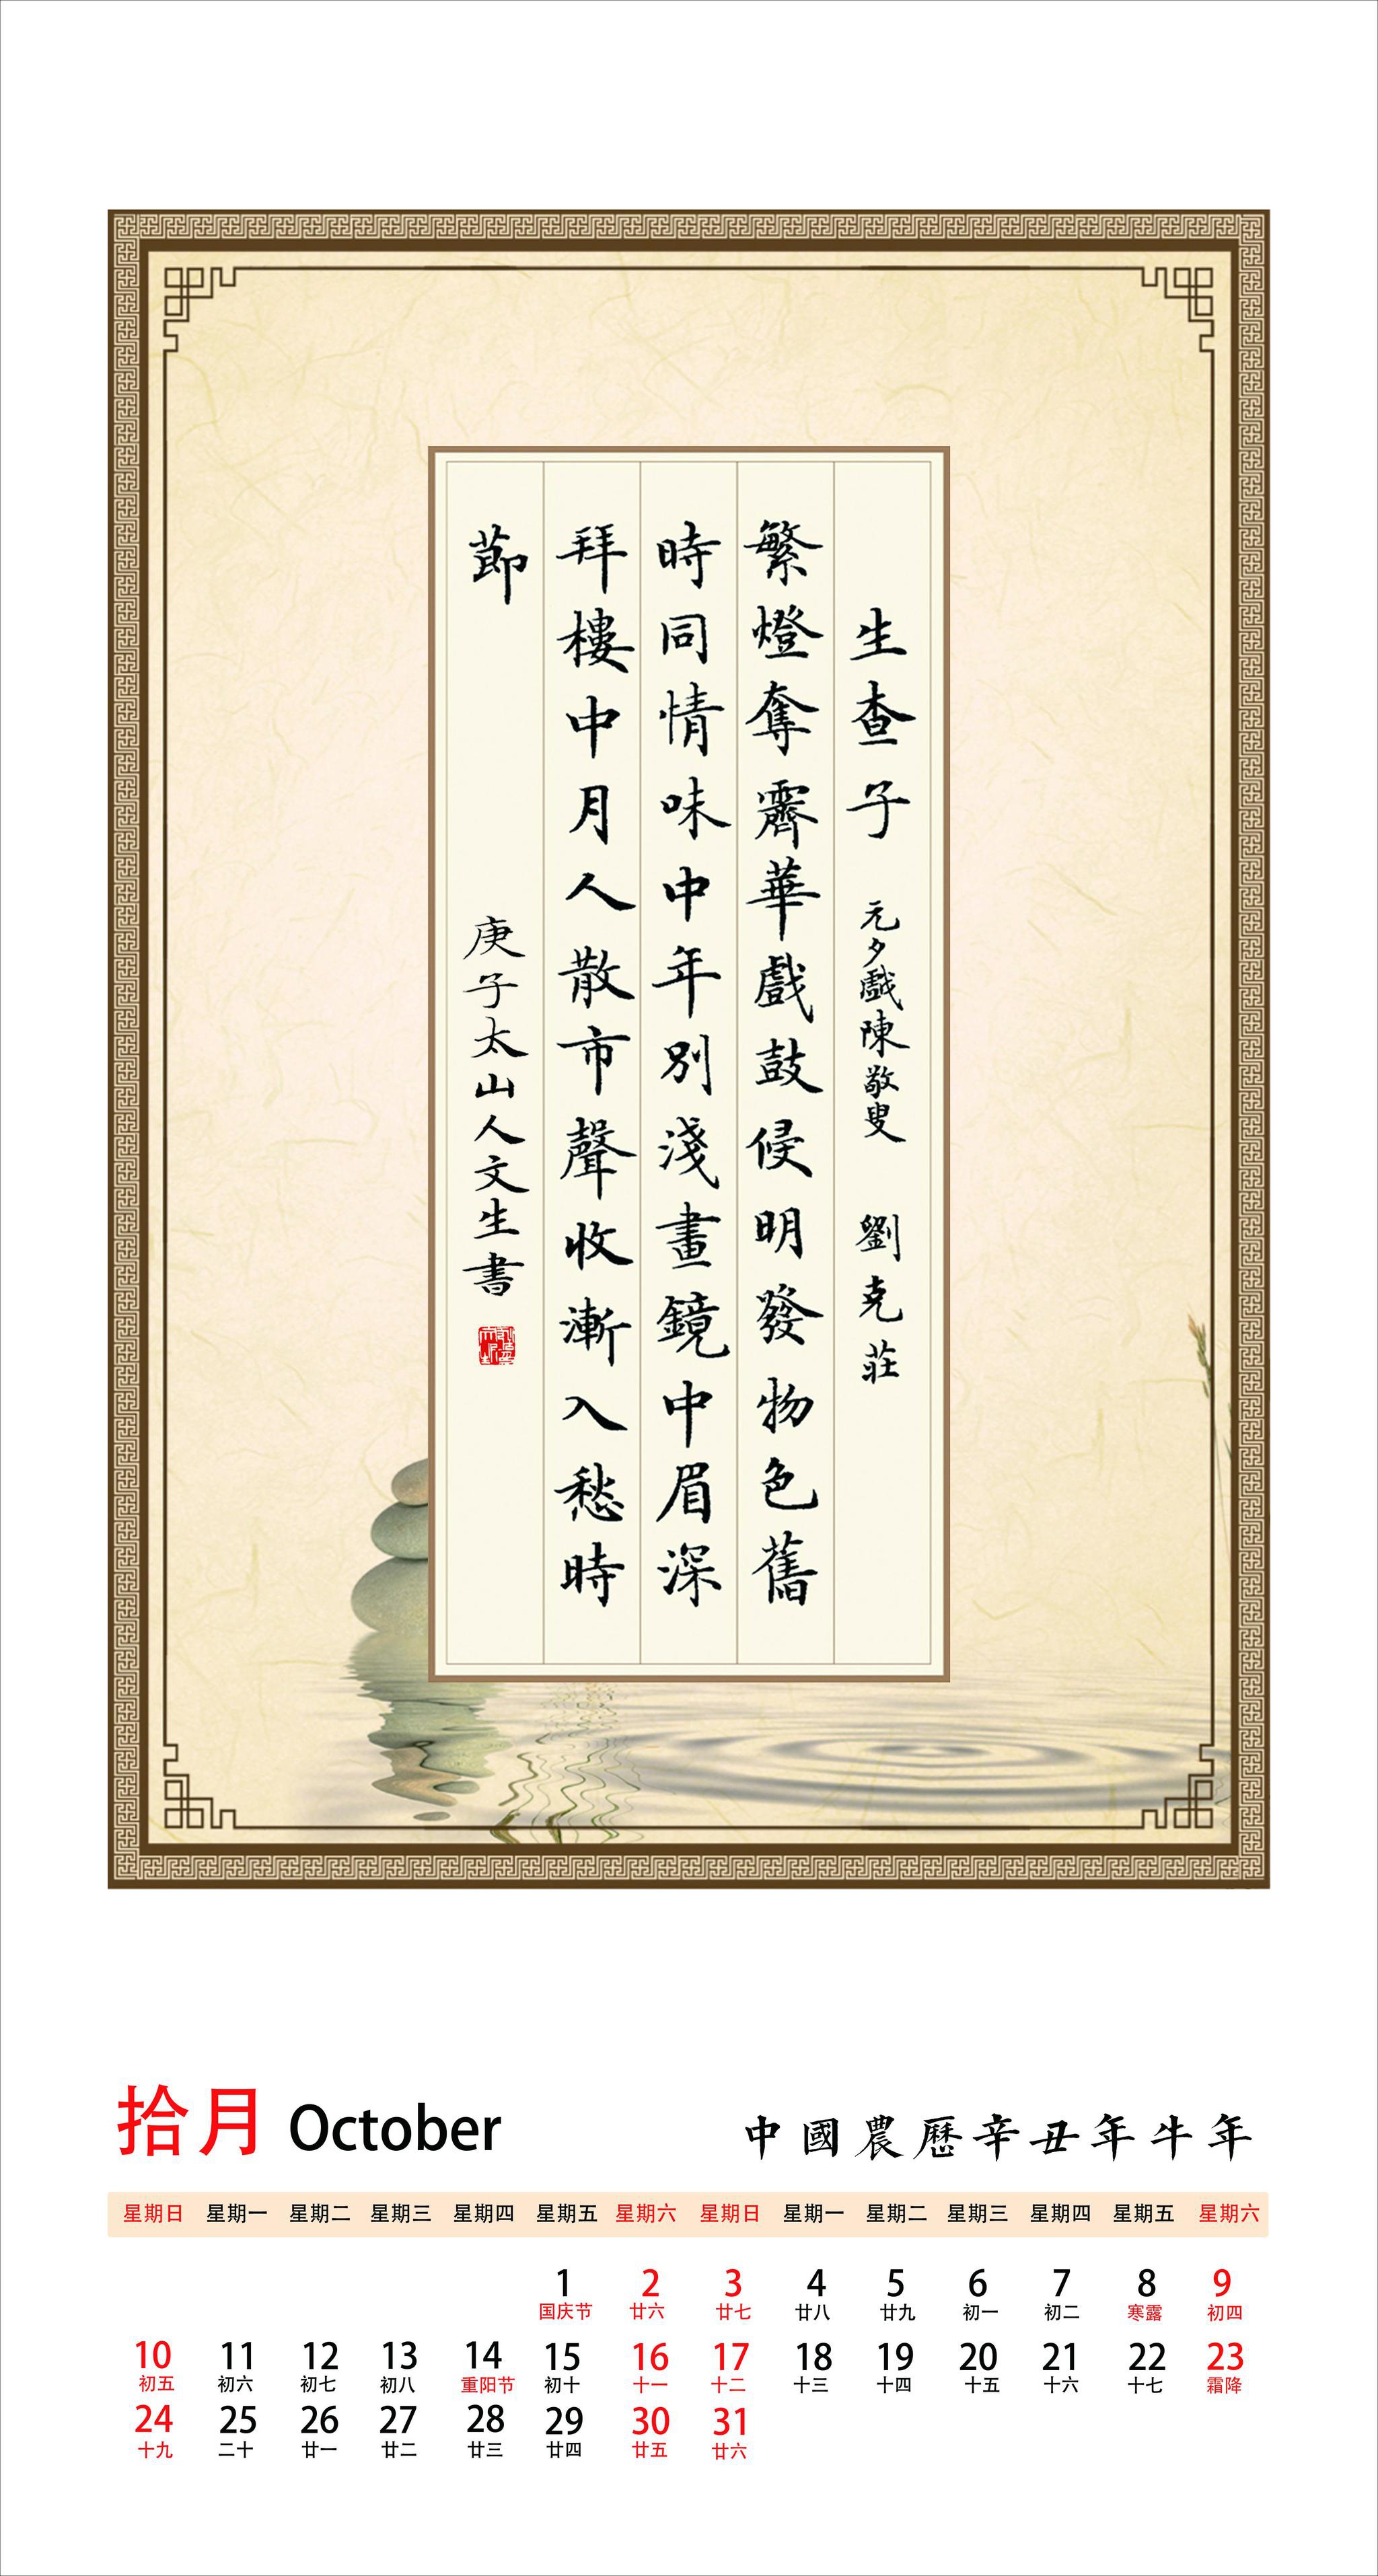 生查子 元夕戲陳敬叟 劉克莊
繁燈奪霽華戲鼓侵明發物色舊
時同情味中年別淺畫鏡中眉深
拜樓中月人散市聲收漸入愁時
節
庚子太山人文生書
拾月 October
中國農歷辛丑年牛年
星期日 星期一 星期二 星期三 星期四 星期五 星期六 星期日 星期一 星期二 星期三 星期四 星期五 星期六
1 2 3 4 5 6 7 8 9
国庆节 廿六 廿七 廿八 廿九 初一 初二 寒露 初四
10 11 12 13 14 15 16 17 18 19 20 21 22 23
初五 初六 初七 初八 重阳节 初十 十一 十二 十三 十四 十五 十六 十七 霜降
24 25 26 27 28 29 30 31
十九 二十 廿一 廿二 廿三 廿四 廿五 廿六